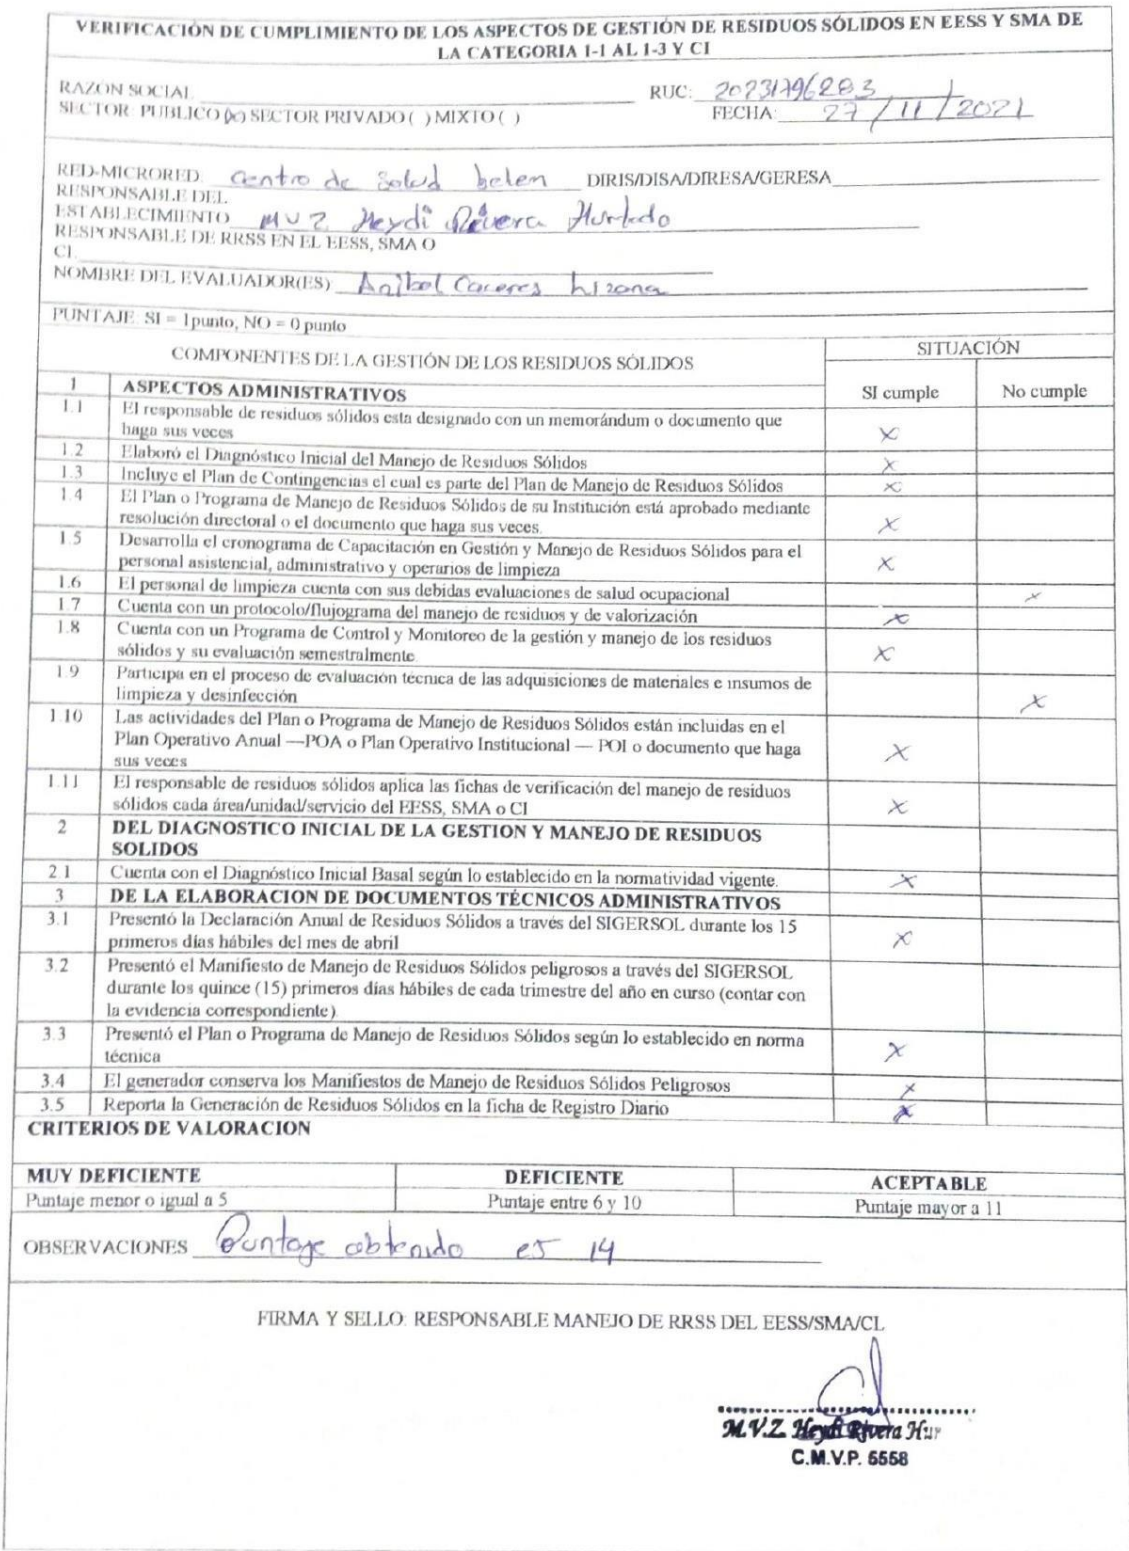 VERIFICACIÓN DE CUMPLIMIENTO DE LOS ASPECTOS DE GESTIÓN DE RESIDUOS SÓLIDOS EN EESS Y SMA DE
LA CATEGORIA I-1 AL I-3 Y CI
RAZÓN SOCIAL RUC: 20231796283
SECTOR: PUBLICO (x) SECTOR PRIVADO ( ) MIXTO ( ) FECHA: 27/11/2021
RED-MICRORED: Centro de Salud belen DIRIS/DISA/DIRESA/GERESA
RESPONSABLE DEL
ESTABLECIMIENTO MVZ Heydi Rivera Hurtado
RESPONSABLE DE RRSS EN EL EESS, SMA O
CI:
NOMBRE DEL EVALUADOR(ES) Anibal Caceres Lizana
PUNTAJE: SI = 1punto, NO = 0 punto
COMPONENTES DE LA GESTIÓN DE LOS RESIDUOS SÓLIDOS SITUACIÓN
1 ASPECTOS ADMINISTRATIVOS SI cumple No cumple
1.1 El responsable de residuos sólidos esta designado con un memorándum o documento que
haga sus veces X
1.2 Elaboró el Diagnóstico Inicial del Manejo de Residuos Sólidos X
1.3 Incluye el Plan de Contingencias el cual es parte del Plan de Manejo de Residuos Sólidos X
1.4 El Plan o Programa de Manejo de Residuos Sólidos de su Institución está aprobado mediante
resolución directoral o el documento que haga sus veces. X
1.5 Desarrolla el cronograma de Capacitación en Gestión y Manejo de Residuos Sólidos para el
personal asistencial, administrativo y operarios de limpieza X
1.6 El personal de limpieza cuenta con sus debidas evaluaciones de salud ocupacional X
1.7 Cuenta con un protocolo/flujograma del manejo de residuos y de valorización X
1.8 Cuenta con un Programa de Control y Monitoreo de la gestión y manejo de los residuos
sólidos y su evaluación semestralmente. X
1.9 Participa en el proceso de evaluación técnica de las adquisiciones de materiales e insumos de
limpieza y desinfección X
1.10 Las actividades del Plan o Programa de Manejo de Residuos Sólidos están incluidas en el
Plan Operativo Anual —POA o Plan Operativo Institucional — POI o documento que haga
sus veces X
1.11 El responsable de residuos sólidos aplica las fichas de verificación del manejo de residuos
sólidos cada área/unidad/servicio del EESS, SMA o CI X
2 DEL DIAGNOSTICO INICIAL DE LA GESTION Y MANEJO DE RESIDUOS
SOLIDOS
2.1 Cuenta con el Diagnóstico Inicial Basal según lo establecido en la normatividad vigente. X
3 DE LA ELABORACION DE DOCUMENTOS TÉCNICOS ADMINISTRATIVOS
3.1 Presentó la Declaración Anual de Residuos Sólidos a través del SIGERSOL durante los 15
primeros días hábiles del mes de abril X
3.2 Presentó el Manifiesto de Manejo de Residuos Sólidos peligrosos a través del SIGERSOL
durante los quince (15) primeros días hábiles de cada trimestre del año en curso (contar con
la evidencia correspondiente)
3.3 Presentó el Plan o Programa de Manejo de Residuos Sólidos según lo establecido en norma
técnica X
3.4 El generador conserva los Manifiestos de Manejo de Residuos Sólidos Peligrosos X
3.5 Reporta la Generación de Residuos Sólidos en la ficha de Registro Diario X
CRITERIOS DE VALORACION
MUY DEFICIENTE DEFICIENTE ACEPTABLE
Puntaje menor o igual a 5 Puntaje entre 6 y 10 Puntaje mayor a 11
OBSERVACIONES Puntaje obtenido es 14
FIRMA Y SELLO: RESPONSABLE MANEJO DE RRSS DEL EESS/SMA/CL
M.V.Z. Heydi Rivera Hur
C.M.V.P. 5558